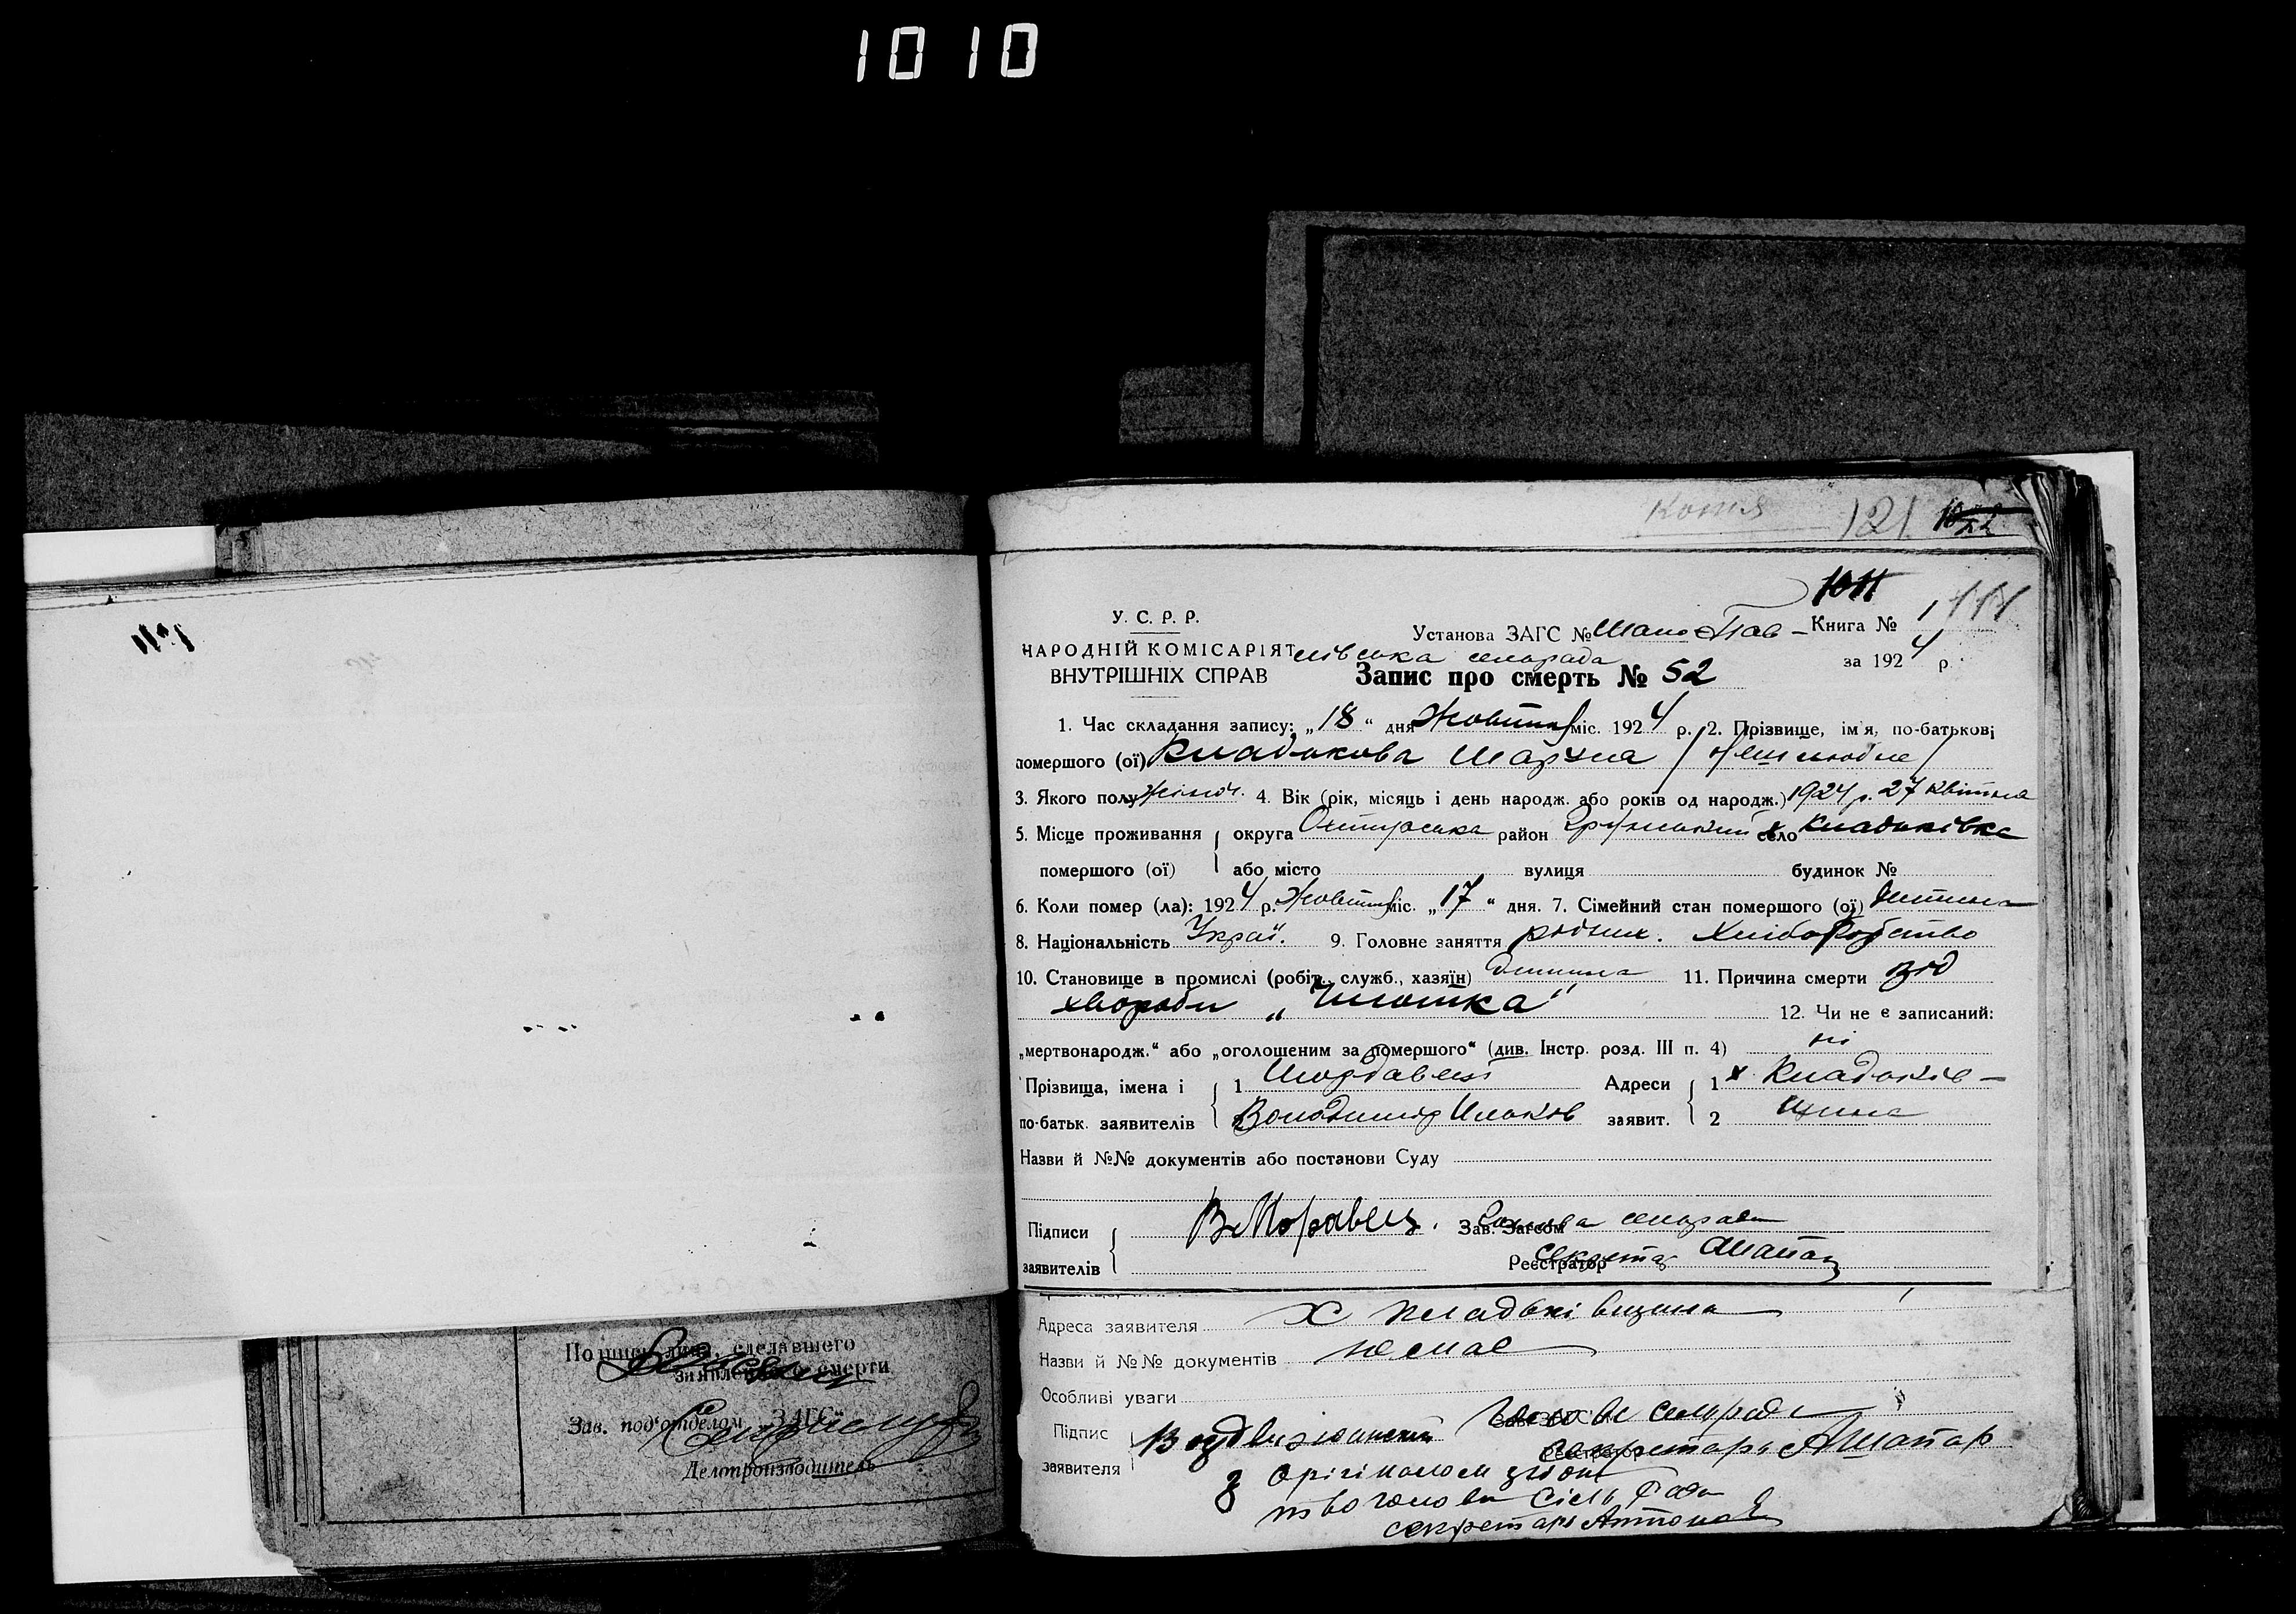 1010
Копия 121
1011
У. С. Р. Р.
НАРОДНІЙ КОМІСАРІЯТ
ВНУТРІШНІХ СПРАВ
Установа ЗАГС № Мало-Пав-
лівська сельрада
Книга № 1
за 1924 р.
Запис про смерть № 52
1. Час складання запису: „18“ дня Жовтня міс. 1924 р. 2. Прізвище, ім'я, по-батькові
помершого (ої) Кладькова Марына
3. Якого полу жіноч. 4. Вік (рік, місяць і день народж. або років од народж.) 1924 р. 27 квітня
5. Місце проживання округа Охтирська район Грунський село х Кладьківка
помершого (ої) або місто вулиця будинок №
6. Коли помер (ла): 1924 р. Жовтня міс. „17“ дня. 7. Сімейний стан помершого (ої) Дитина
8. Національність Украї. 9. Головне заняття родит. Хліборобство
10. Становище в промислі (робіт., служб., хазяїн) Дитина 11. Причина смерти від
хвороби
12. Чи не є записаний:
„мертвонародж.“ або „оголошеним за помершого“ (див. Інстр. розд. III п. 4) ні
Прізвища, імена і 1 Моравець Адреси 1 х Кладьків-
по-батьк. заявителів 2 Володимир Ільков заявит. 2 щина
Назви й №№ документів або постанови Суду
Підписи В Моравець. Зав. Загсом Голова сельради
заявителів Реєстратор секретар АШапар
Адреса заявителя Х Кладьківщина
Назви й №№ документів немає
Особливі уваги
Підпис Воздвиженский Голова сельради
заявителя секретарь АШапар
З орігіналом згідно
голови Сіль Ради
секретарь
Подпись лица, сделавшего
заявление о смерти
Зав. под'отделом ЗАГС
Делопроизводитель